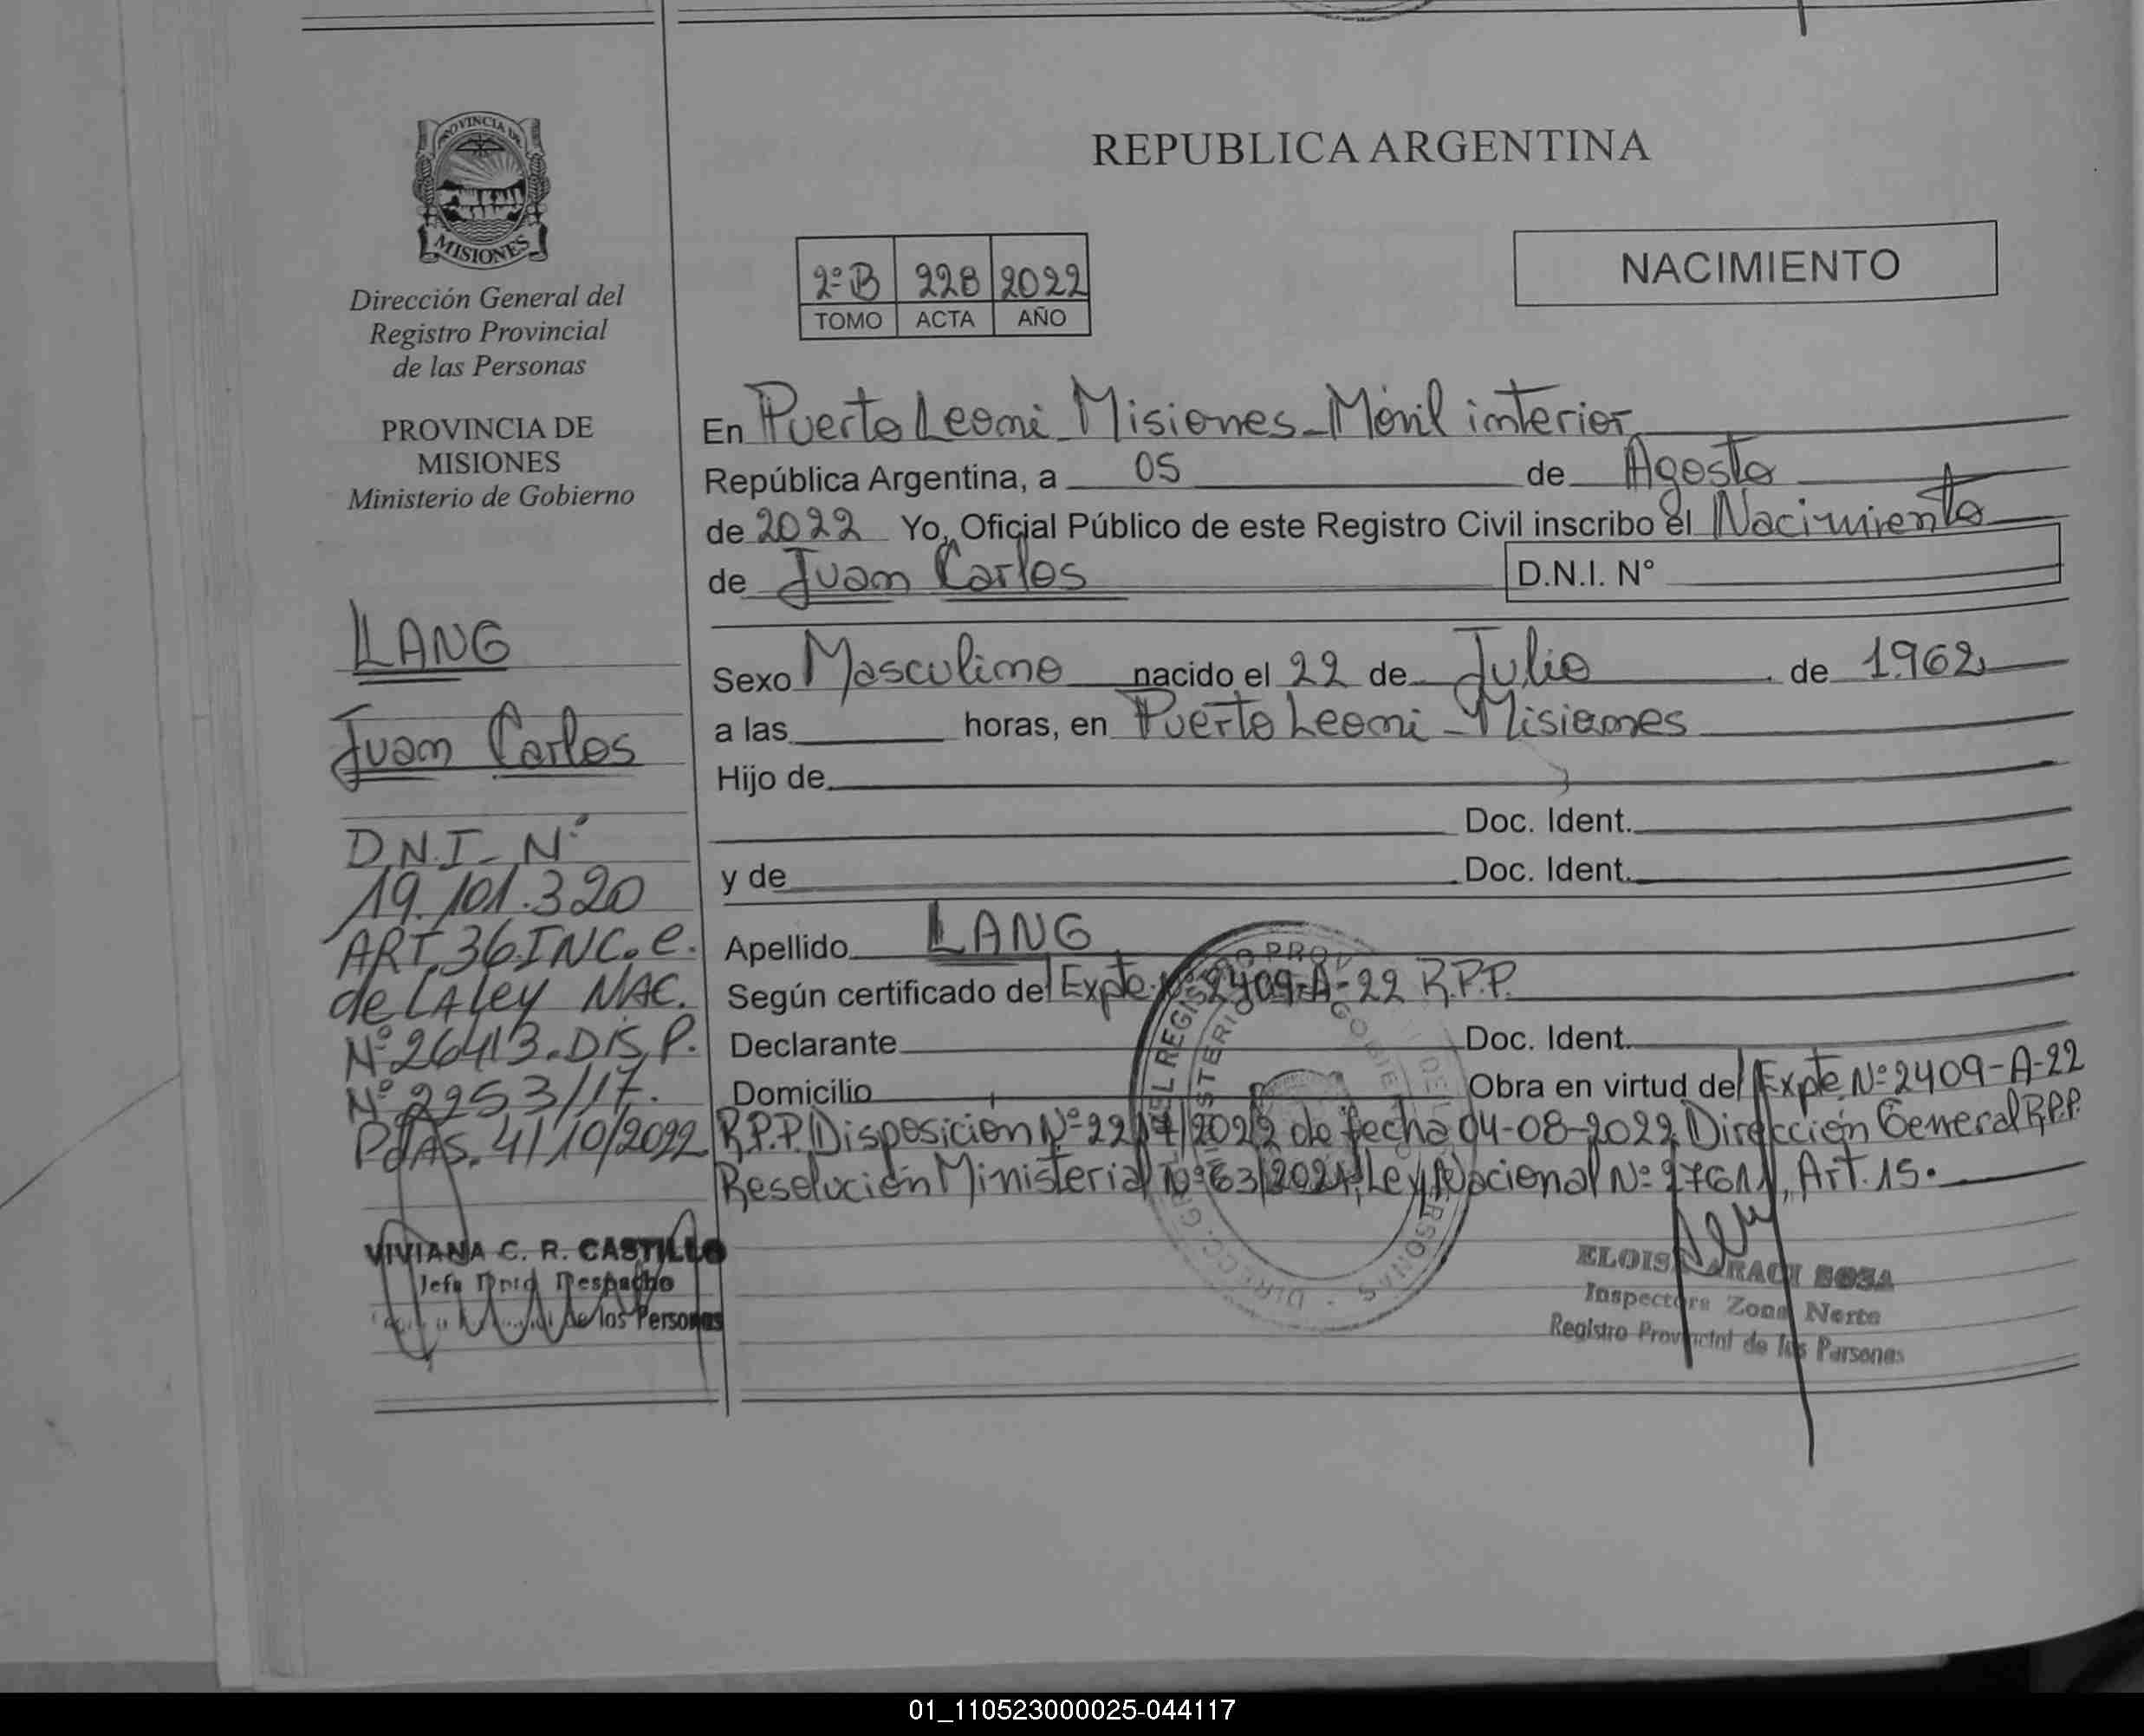 PROVINCIA DE
MISIONES
Dirección General del
Registro Provincial
de las Personas
PROVINCIA DE
MISIONES
Ministerio de Gobierno
LANG
Juan Carlos
D.N.I. Nº
19.101.320
ART. 36 INC. e.
de LA Ley NAC.
Nº 26413. DISP.
Nº 2253/17.
PdAS. 4/10/2022
VIVIANA C. R. CASTILLO
Jefa Dpto Despacho
de las Personas
REPUBLICA ARGENTINA
NACIMIENTO
2º B 228 2022
TOMO ACTA AÑO
En Puerto Leoni Misiones - Móvil interior
República Argentina, a 05 de Agosto
de 2022 Yo, Oficial Público de este Registro Civil inscribo el Nacimiento
de Juan Carlos D.N.I. N°
Sexo Masculino nacido el 22 de Julio de 1.962
a las horas, en Puerto Leoni - Misiones
Hijo de
Doc. Ident.
y de Doc. Ident.
Apellido LANG
Según certificado del Expte Nº 2409-A-22 R.P.P.
Declarante Doc. Ident.
Domicilio Obra en virtud del Expte. Nº 2409-A-22
R.P.P. Disposición Nº /2022 de fecha 04-08-2022 Dirección General R.P.P.
Resolución Ministerial Nº 63/2021, Ley Nacional Nº 27611, Art. 15.
ARACI SOSA
Inspectora Zona Norte
Registro Provincial de las Personas
01_110523000025-044117